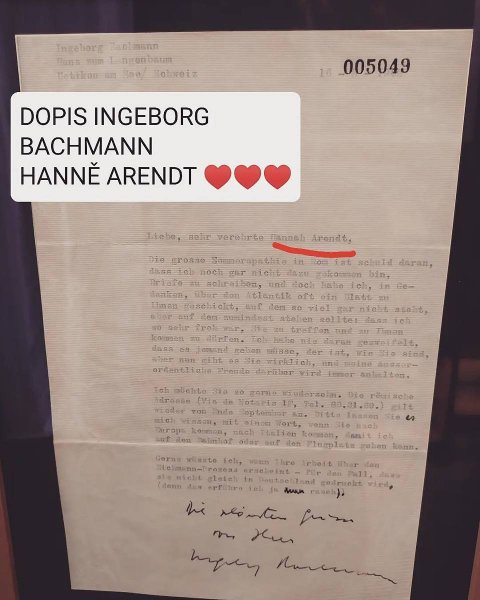 Ingeborg Bachmann
Haus zum Langenbaum
Uetikon am See/ Schweiz
16
005049
DOPIS INGEBORG
BACHMANN
HANNĚ ARENDT ❤️❤️❤️
Liebe, sehr verehrte Hannah Arendt,
Die grosse Sommerapathie in Rom ist schuld daran,
dass ich noch gar nicht dazu gekommen bin,
Briefe zu schreiben, und doch habe ich, in Ge-
danken, über den Atlantik oft ein Blatt zu
Ihnen geschickt, auf dem so viel gar nicht steht,
aber auf dem zumindest stehen sollte: dass ich
so sehr froh war, Sie zu treffen und zu Ihnen
kommen zu dürfen. Ich habe nie daran gezweifelt,
dass es jemand geben müsse, der ist, wie Sie sind,
aber nun gibt es Sie wirklich, und meine ausser-
ordentliche Freude darüber wird immer anhalten.
Ich möchte Sie so gerne wiedersehn. Die römische
Adresse (Via de Notaris 1F, Tel.) gilt
wieder von Ende September an. Bitte lassen Sie es
mich wissen, mit einem Wort, wenn Sie nach
Europa kommen, nach Italien kommen, damit ich
auf den Bahnhof oder auf den Flugplatz gehen kann.
Gerne wüsste ich, wann Ihre Arbeit über den
Eichmann-Prozess erscheint - für den Fall, dass
sie nicht gleich in Deutschland gedruckt wird,
(denn das erführe ich ja rasch).
Die schönsten Grüsse
von Ihrer
Ingeborg Bachmann